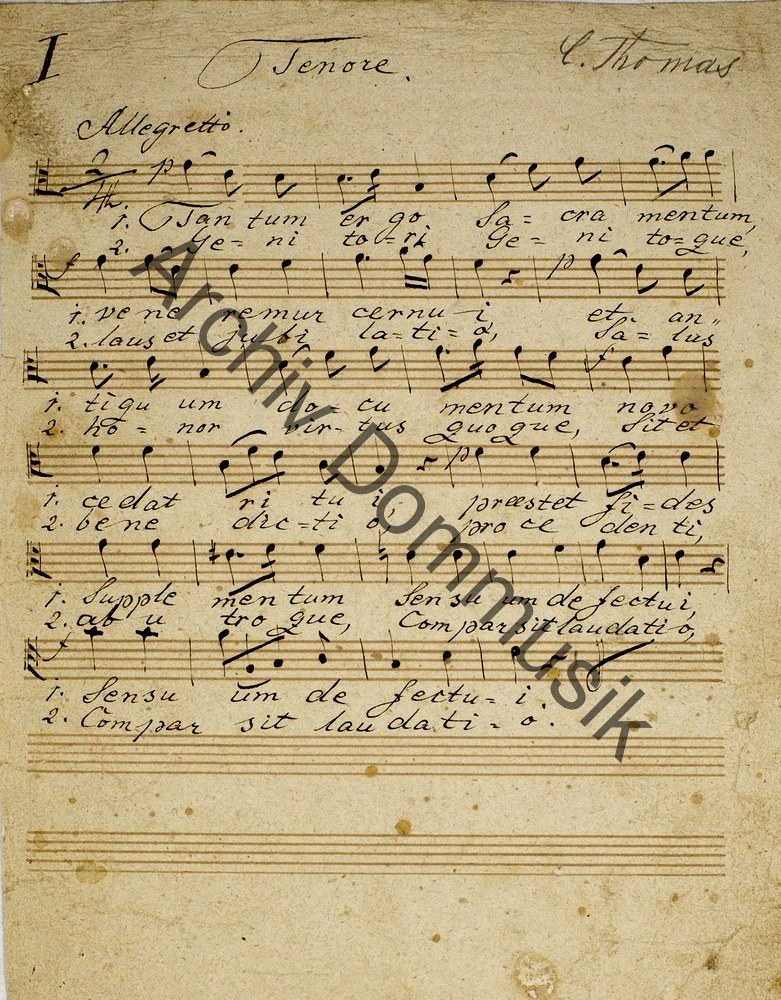 I Tenore. C. Thomas
Allegretto.
2/4. p
1. Tan tum er go Sa= cra mentum,
2. Ge= ni to=ri Ge= ni to=que,
f p
1. vene remur cernu i et an"
2. laus et jubi la=ti=o, Sa= lus
f
1. tiqu um do= cu mentum novo
2. ho= nor vir= tus quoque, sit et
p
1. cedat ri tu i, præstet fi=des
2. bene dic=ti o, pro ce den ti,
1. Supple mentum Sensu um de fectui,
2. ab u tro que, Compar sit laudatio,
f
1. Sensu um de fectu= i.
2. Compar sit lau dati= o.
Archiv Dommusik